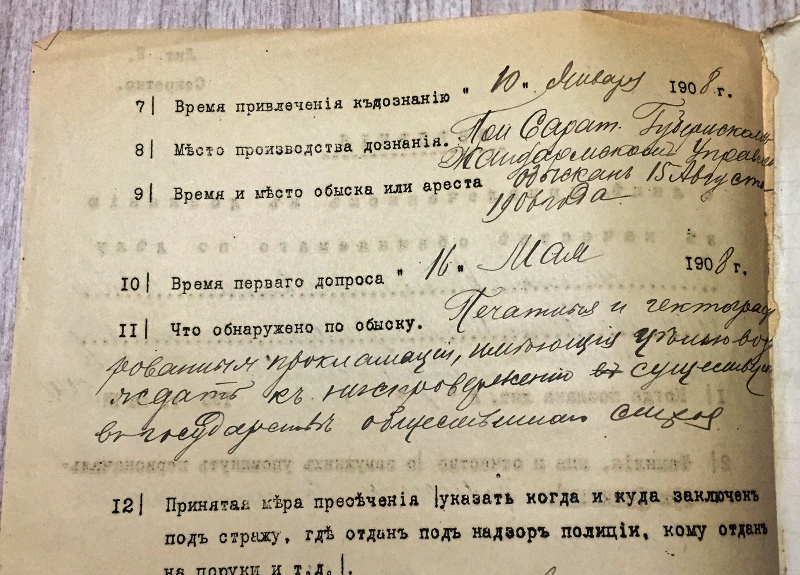 7| Время привлеченія къдознанію " 10 " Января 1908 г.
8| Мѣсто производства дознанія. При Сарат. Губернскомъ
Жандармскомъ Управлен
9| Время и мѣсто обыска или ареста обысканъ 15 Августа
1906 года
10| Время перваго допроса " 16 " Мая 1908 г.
11| Что обнаружено по обыску. Печатныя и гектографи
рованныя прокламаціи, имѣющія цѣлью воз
къ ниспроверженію существующ
въ государствѣ общественнаго строя
12| Принятая мѣра пресѣченія |указать когда и куда заключен
подъ стражу, гдѣ отданъ подъ надзоръ полиціи, кому отданъ
на поруки и т.д.|.